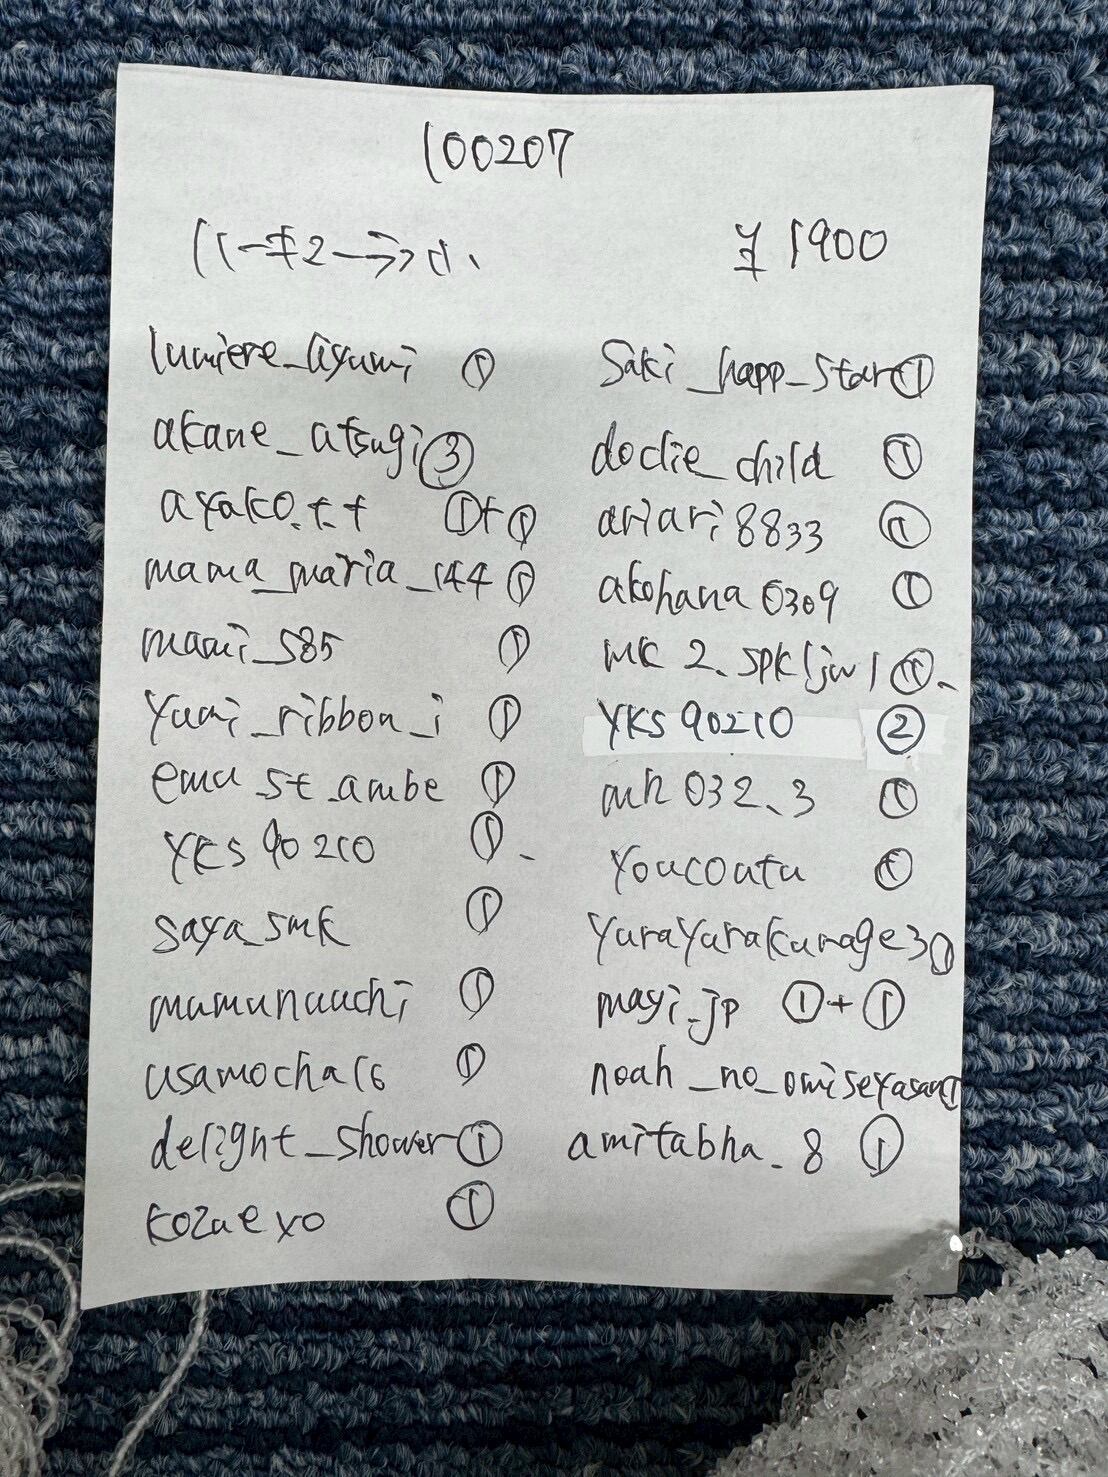 100207
¥1900
lumiere_ayumi ①
akane_atsugi ③
ayako.t.t ①+①
mama_maria_144 ①
mami_585 ①
yumi_ribbon_i ①
emu_st_ambe ①
YKS90210 ①
saya_smk ①
mumunuuchi ①
usamocha16 ①
delight_shower ①
kozuexo ①
Saki_happ_star ①
doclie_child ①
ariari8833 ①
akohana0309 ①
YKS90210 ②
mh032_3 ①
Youcouta ①
YuraYurakurage3 ①
mayi_jp ①+①
noah_no_omiseyasan ①
amitabha_8 ①